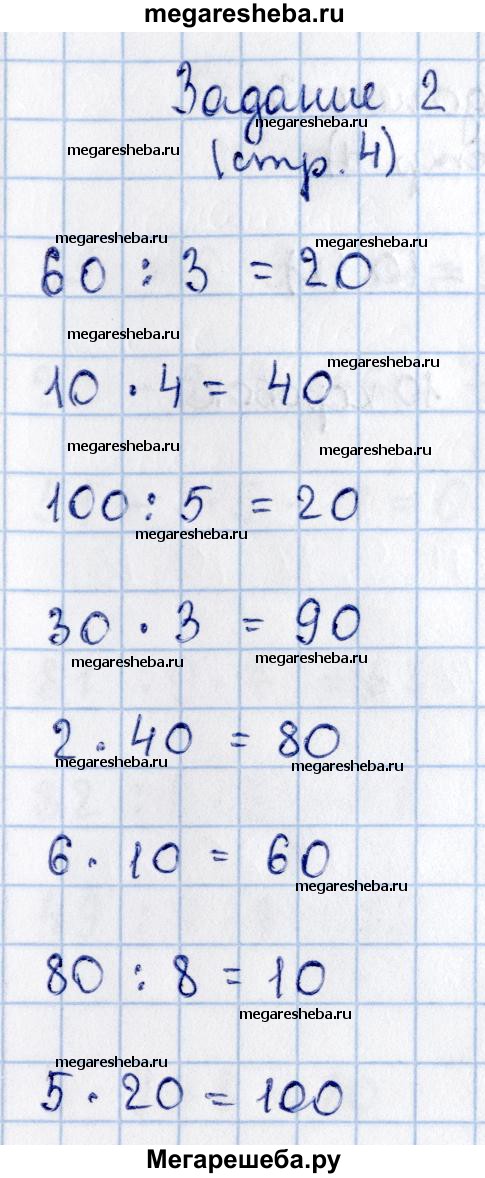 megaresheba.ru
Задание 2
megaresheba.ru
megaresheba.ru
(стр. 4)
megaresheba.ru
megaresheba.ru
60 : 3 = 20
megaresheba.ru
megaresheba.ru
10 · 4 = 40
megaresheba.ru
megaresheba.ru
100 : 5 = 20
megaresheba.ru
30 · 3 = 90
megaresheba.ru
megaresheba.ru
2 · 40 = 80
megaresheba.ru
megaresheba.ru
6 · 10 = 60
megaresheba.ru
80 : 8 = 10
megaresheba.ru
megaresheba.ru
5 · 20 = 100
Мегарешеба.ру